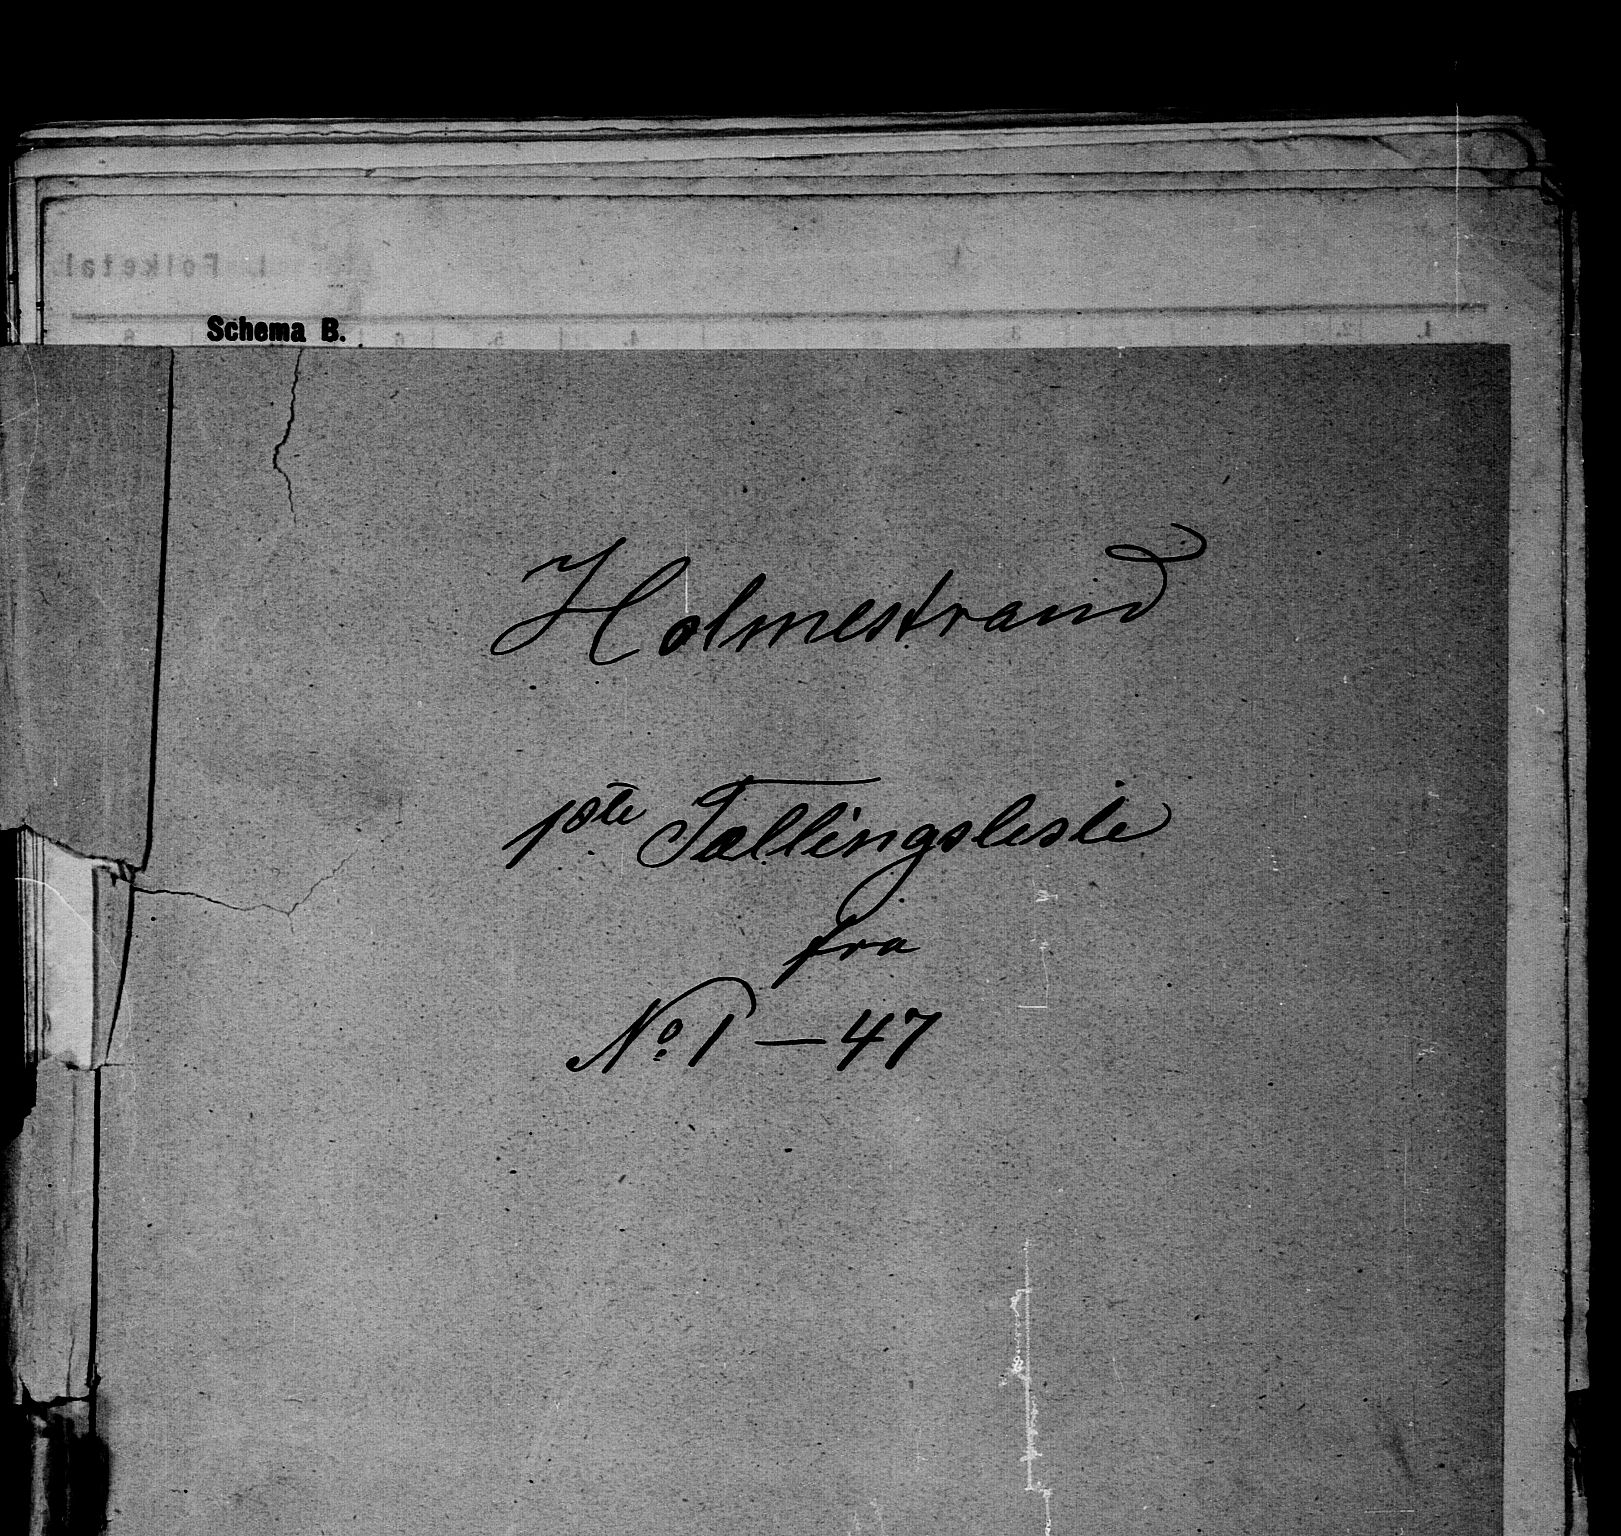 Folketal.
Schema B.
8. 6. 5. 4. 3. 2. 1.
Holmestrand
1ste Tællingsliste
fra
No. 1 — 47